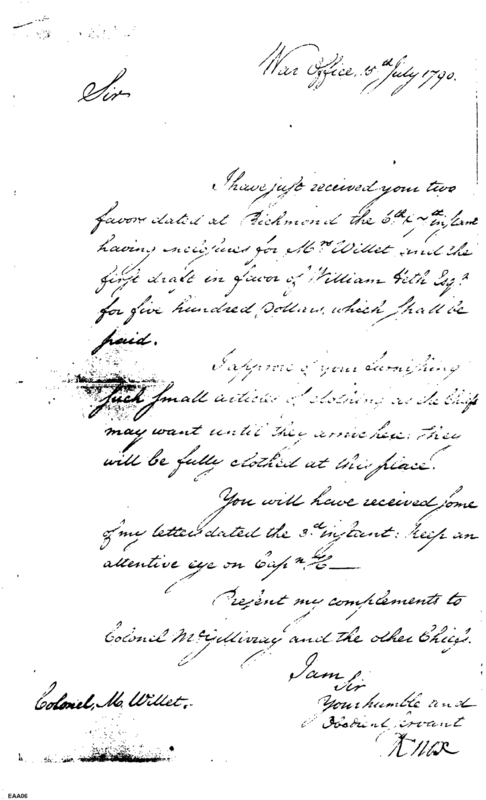 War Office, 15th July 1790.
Sir
I have just received your two
favors dated at Richmond the 6th & 7th instant
having inclosures for Mrs Willet, and the
first draft in favor of William Heth Esqr
for five hundred Dollars, which shall be
paid.
I approve of your furnishing
such small articles of clothing as the Chiefs
may want until they arrive here: they
will be fully clothed at this place.
You will have received some
of my letters dated the 3d instant: Keep an
attentive eye on Capn H—
Present my complements to
Colonel McGillivray and the other Chiefs.
I am
Sir
Your humble and
Obedient servant
Knox
Colonel, M. Willet.
EAA06